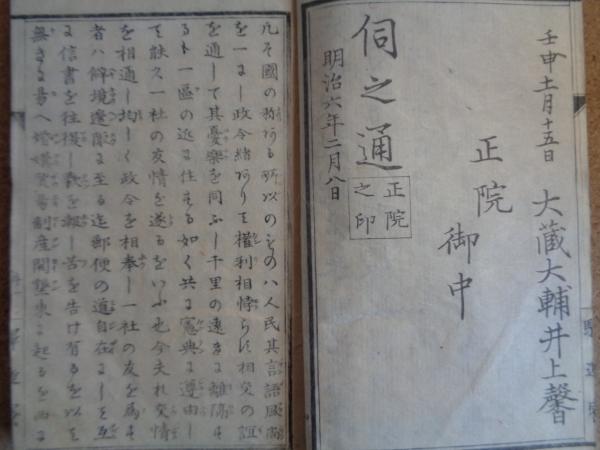 壬申十一月十五日
大蔵大輔井上馨
正院
御中
伺之通
正院
之印
明治六年二月八日
凡そ國の
所以のものハ人民其言語風尚
を一にし政令緒ありて權利相悖らす相交の誼
を通して其憂樂を同ふし千里の遠きに離隔す
るト一區の近に住する如く共に憲典に遵由し
て能久一社の友情を遂るをいふ也今夫れ交情
を相通し均しく政令を相奉し一社の友を為す
者ハ僻境邊陬に至る迄郵便の道自在にして互
に信書を往復し歡を報し苦を告け有るを以て
無きに易へ婚媾貿易制度開墾
起るを